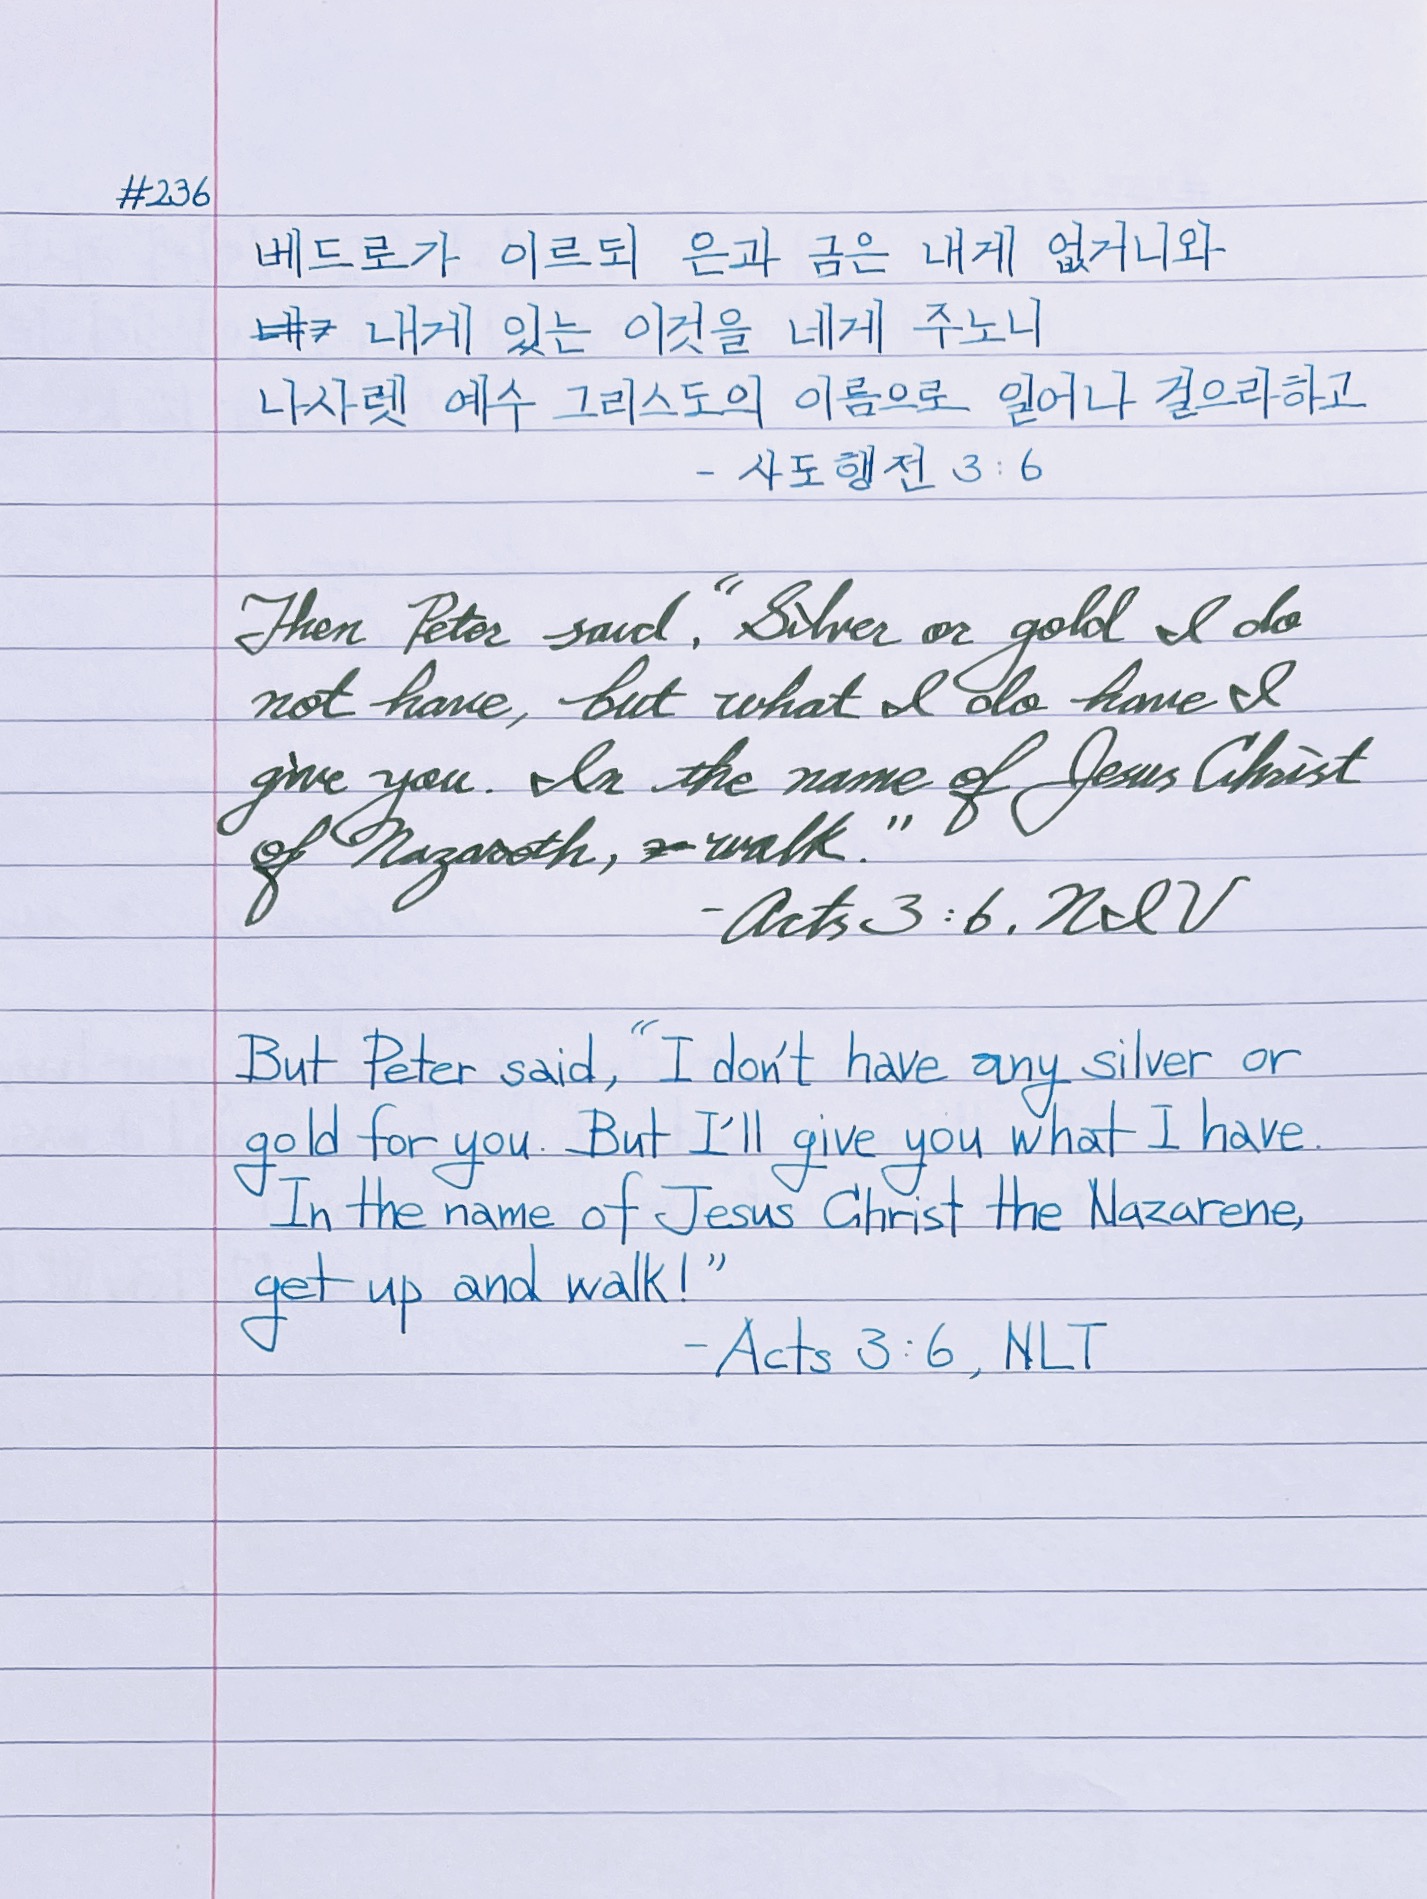 #236
베드로가 이르되 은과 금은 내게 없거니와
내게 있는 이것을 네게 주노니
나사렛 예수 그리스도의 이름으로 일어나 걸으라하고
- 사도행전 3:6
Then Peter said, "Silver or gold I do
not have, but what I do have I
give you. In the name of Jesus Christ
of Nazareth, walk."
- Acts 3:6, NIV
But Peter said, "I don't have any silver or
gold for you. But I'll give you what I have.
In the name of Jesus Christ the Nazarene,
get up and walk!"
- Acts 3:6, NLT